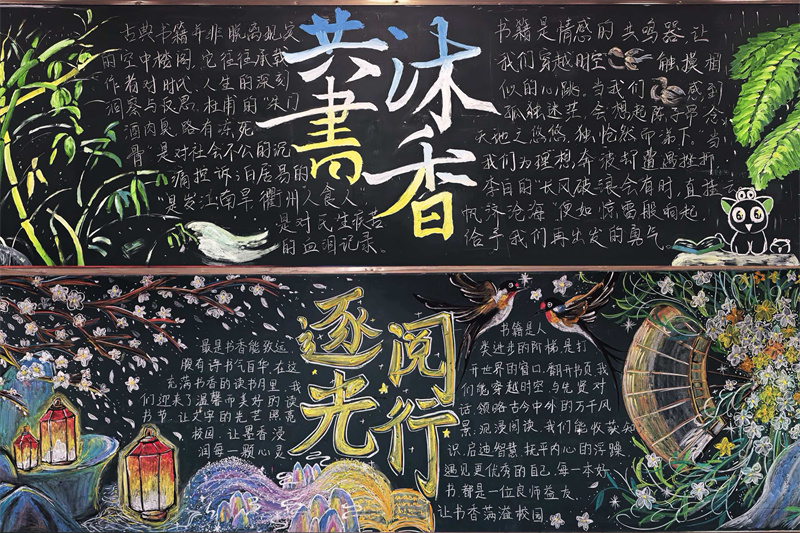 共沐書香
古典书籍并非脱离现实
的空中楼阁,它往往承载
作者对时代、人生的深刻
洞察与反思。杜甫的“朱门
酒肉臭,路有冻死
骨”是对社会不公的沉
痛控诉;白居易的
“是岁江南旱,衢州人食人”
是对民生疾苦
的血泪记录。
书籍是情感的共鸣器,让
我们穿越时空,触摸相
似的心跳。当我们感到
孤独迷茫,会想起陈子昂“念
天地之悠悠,独怆然而涕下。”当
我们为理想奔波却遭遇挫折,
李白的“长风破浪会有时,直挂云
帆济沧海”便如惊雷般响起,
给予我们再出发的勇气。
逐光阅行
最是书香能致远,
腹有诗书气自华。在这
充满书香的读书月里,我
们迎来了温馨而美好的读
书节,让文字的光芒照亮
校园,让墨香浸
润每一颗心灵
书籍是人
类进步的阶梯,是打
开世界的窗口。翻开书页,我
们能穿越时空,与先贤对
话,领略古今中外的万千风
景。沉浸阅读,我们能收获知
识,启迪智慧,抚平内心的浮躁,
遇见更优秀的自己。每一本好
书,都是一位良师益友,
让书香满溢校园。